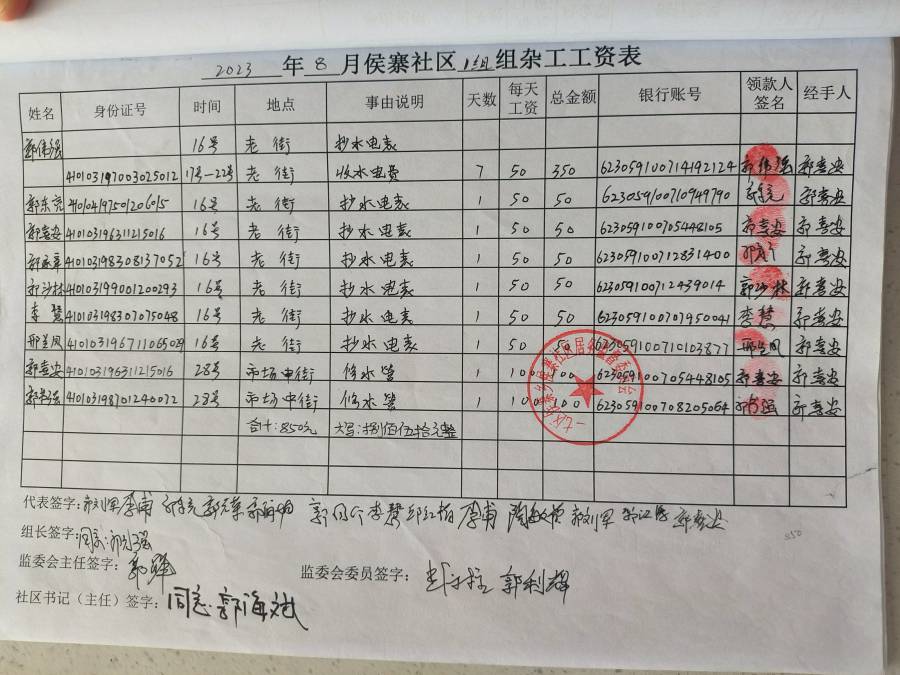 2023 年 8 月侯寨社区 1组 组杂工工资表
姓名 身份证号 时间 地点 事由说明 天数 每天工资 总金额 银行账号 领款人签名 经手人
郭伟强 16号 老街 抄水电表
410103197003025012 17号—22号 老街 收水电费 7 50 350 623059100714192124 郭伟强 郭喜安
郭东亮 16号 老街 抄水电表 1 50 50 623059100710949790 郭喜安
郭喜安 410103196311215016 16号 老街 抄水电表 1 50 50 623059100705448105 郭喜安 郭喜安
410103198308137052 16号 老街 抄水电表 1 50 50 623059100712831400 郭喜安
郭沙林 410103199001200293 16号 老街 抄水电表 1 50 50 623059100712439014 郭沙林 郭喜安
李慧 410103198307075048 16号 老街 抄水电表 1 50 50 623059100707950041 李慧 郭喜安
邢兰凤 410103196711065029 16号 老街 抄水电表 1 50 50 623059100710103877 邢兰凤 郭喜安
郭喜安 410103196311215016 28号 市场中街 修水管 1 100 100 623059100705448105 郭喜安 郭喜安
410103198701240072 28号 市场中街 修水管 1 100 100 623059100708205064 郭喜安
合计:850元 大写:捌佰伍拾元整
代表签字: 李甫 李慧 李甫 郭喜安
850
组长签字: 同意
监委会主任签字: 监委会委员签字: 郭利
社区书记（主任）签字: 同意 郭海斌